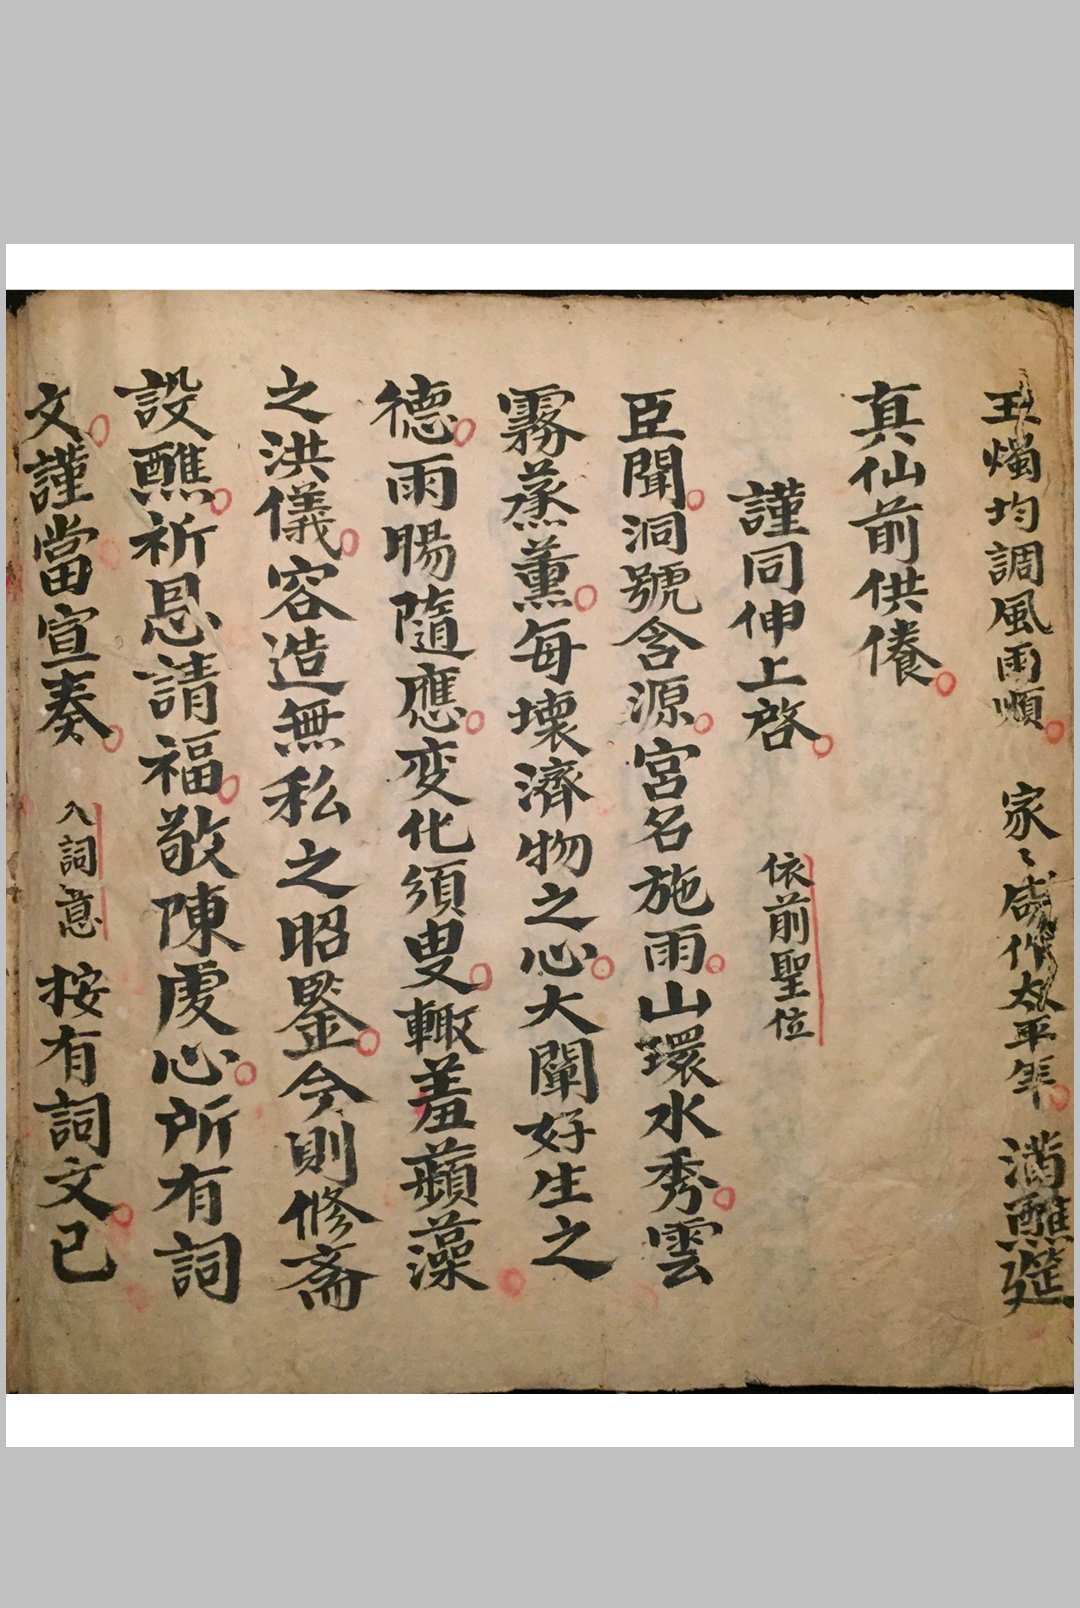 玉燭均調風雨順 家〻咸作太平年 滿醮筵
真仙前供養
謹同伸上啓 依前聖位
臣聞洞號含源宮名施雨山環水秀雲
霧蒸薰每壞濟物之心大闡好生之
德雨暘隨應变化須叟輙羞蘋藻
之洪儀容造無私之昭鋻今則修斋
設醮祈恩請福敬陳虔心所有詞
文謹當宣奏 入詞意 按有詞文已